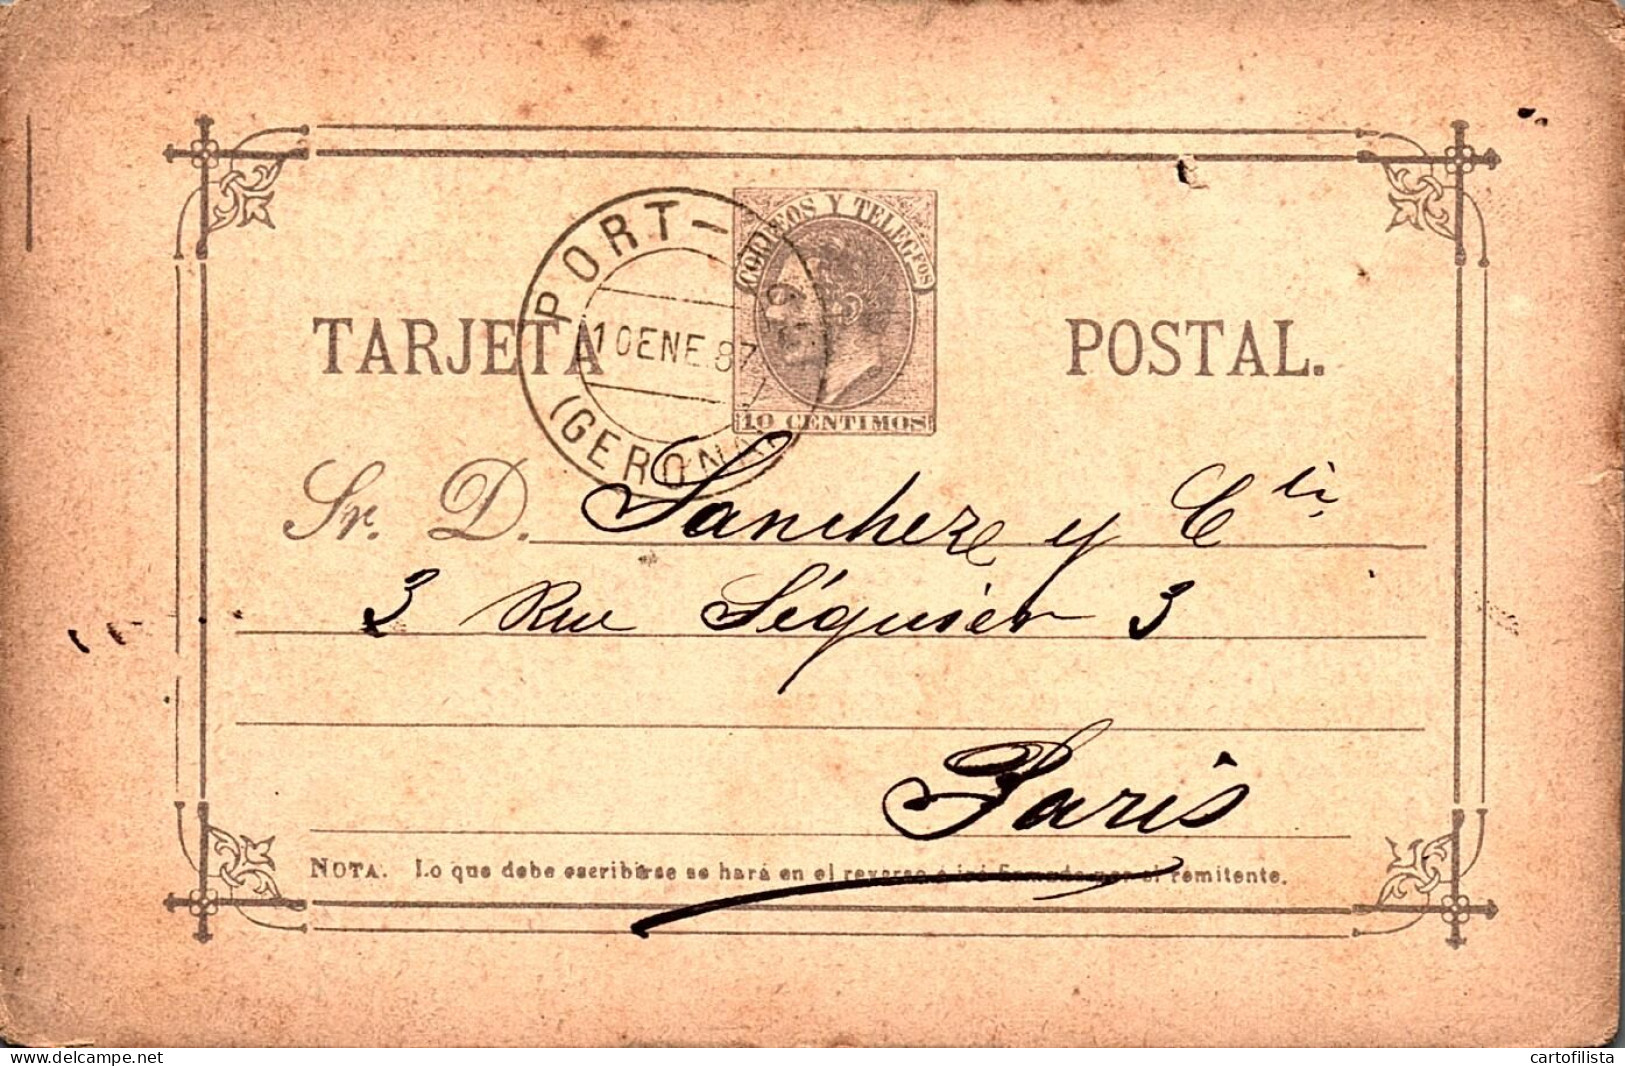 CORREOS Y TELEGFOS
PORT-
10 ENE. 87
(GERONA)
TARJETA POSTAL.
10 CENTIMOS
Sr. D. Sanchez y Cia
3 Rue Séguier 3
Paris
NOTA. Lo que debe escribirse se hará en el reverso é irá firmado por el remitente.
www.delcampe.net
cartofilista